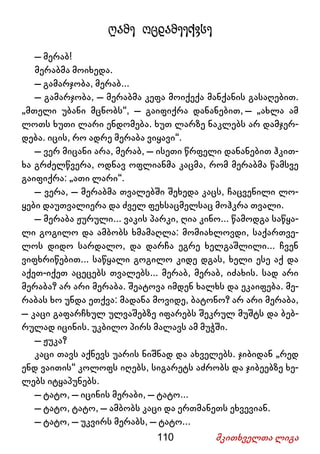 ღამე ოცდამეექვსე
— მერაბ!
მერაბმა მოიხედა.
— გამარჯობა, მერაბ...
— გამარჯობა, — მერაბმა კეფა მოიქექა მანქანის გასაღებით.
„მთელი უბანი მცნობს“, — გაიფიქრა დანანებით, — „ახლა ამ
ლოთს ხუთი ლარი ენდომება. ხუთ ლარზე ნაკლებს არ დამჯერ-
დება. იცის, რო ადრე მერაბა ვიყავი“.
— ვერ მიცანი არა, მერაბ, — ისეთი წრფელი დანანებით ჰკით-
ხა გრძელწვერა, ოდნავ ოფლიანმა კაცმა, რომ მერაბმა წამსვე
გაიფიქრა: „ათი ლარი“.
— ვერა, — მერაბმა თვალებში შეხედა კაცს, ჩაცვენილი ლო-
ყები დაუთვალიერა და ძველ ფეხსაცმელსაც მოჰკრა თვალი.
— მერაბა ჟურული... ვაკის პარკი, ღია კინო... წამოდგა საწყა-
ლი გოგილო და ამბობს ხმამაღლა: მომიახლოვდი, საქართვე-
ლოს დიდო სარდალო, და დარჩა ეგრე ხელგაშლილი... ჩვენ
ვიფხრიწებით... საწყალი გოგილო კიდე დგას, ხელი ესე აქ და
აქეთ-იქეთ აცეცებს თვალებს... მერაბ, მერაბ, იძახის. სად არი
მერაბა? არ არი მერაბა. შეატოვა იმდენ ხალხს და ეკაიფება. მე-
რაბას ხო უნდა ეთქვა: მადანა მოვიდე, ბატონო? არ არი მერაბა,
— კაცი გაფარჩხულ ულვაშებზე იფარებს შეკრულ მუშტს და ბებ-
რულად იცინის. უკბილო პირს მალავს ამ მუჭში.
— ჟუკა?
კაცი თავს აქნევს უარის ნიშნად და ახველებს. ჯიბიდან „რედ
ენდ ვაითის“ კოლოფს იღებს, სიგარეტს აძრობს და ჯიბეებზე ხე-
ლებს იტყაპუნებს.
— ტატო, — იცინის მერაბი, — ტატო...
— ტატო, ტატო, — ამბობს კაცი და ერთმანეთს ეხვევიან.
— ტატო, — უკვირს მერაბს, — ტატო...
110 მკითხველთა ლიგა